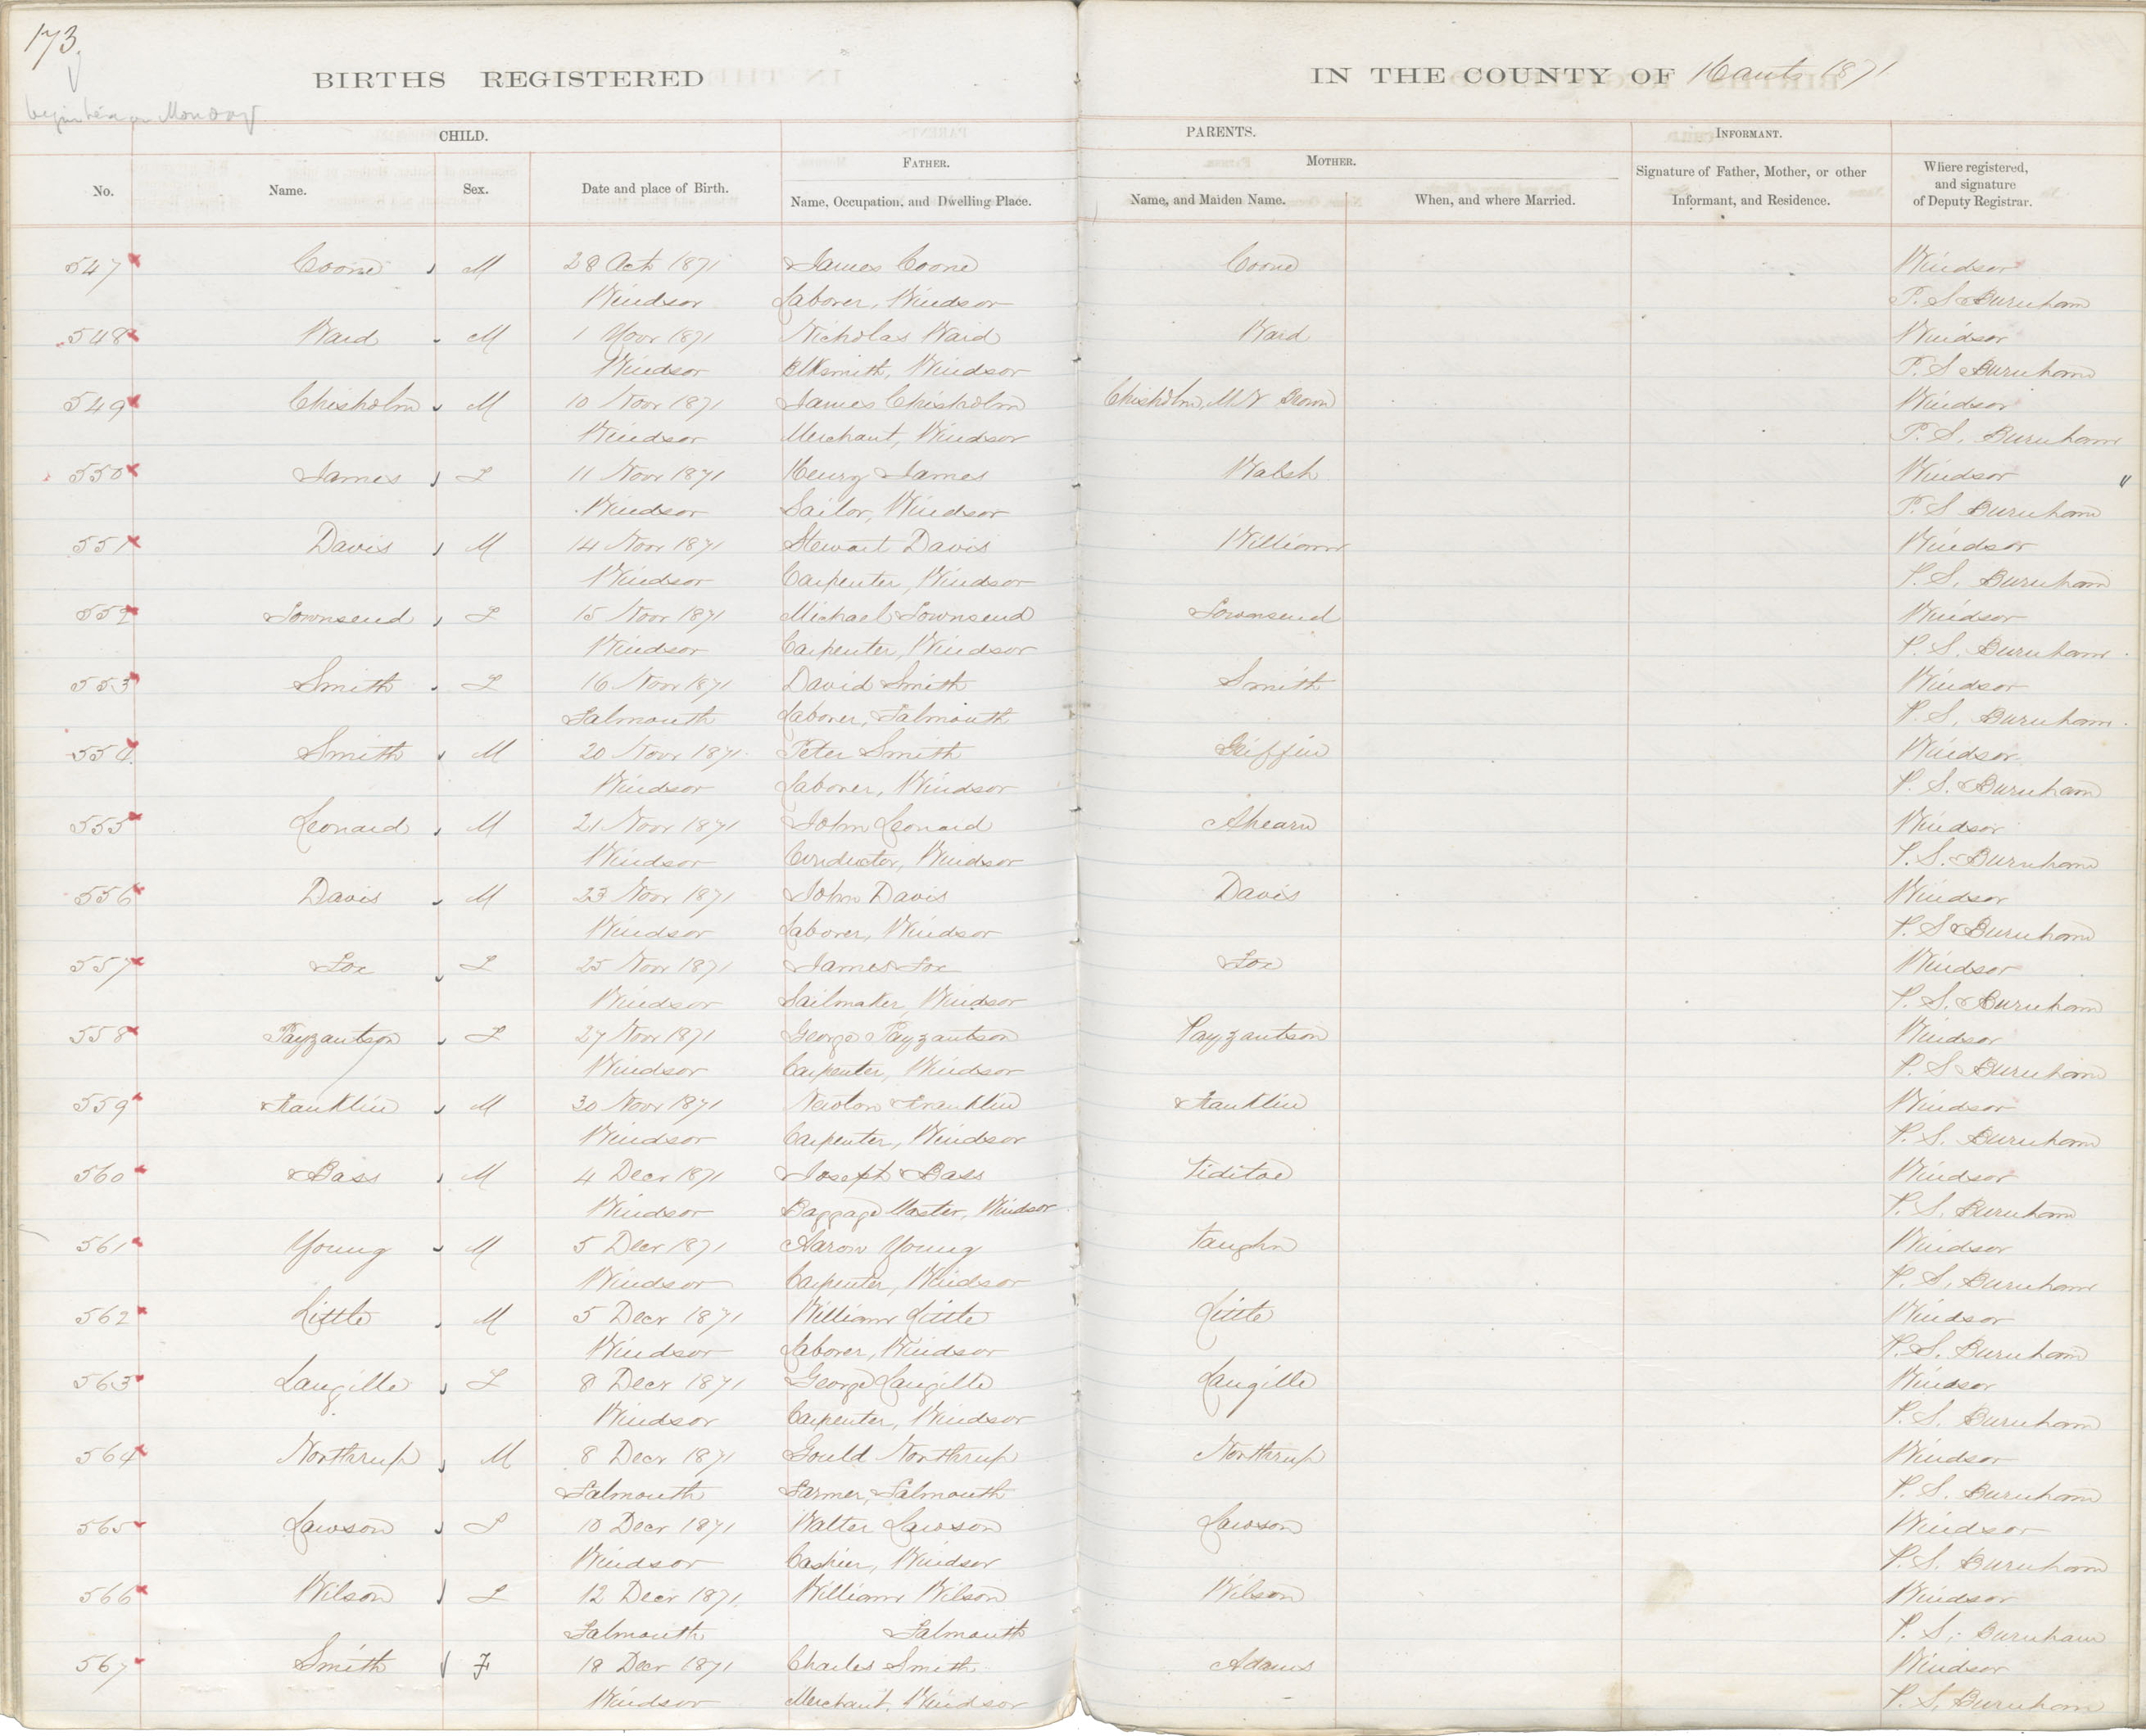 173
BIRTHS REGISTERED IN THE COUNTY OF Hants 1871
Monday
CHILD. PARENTS. INFORMANT.
FATHER. MOTHER.
No. Name. Sex. Date and place of Birth. Name, Occupation, and Dwelling Place. Name, and Maiden Name. When, and where Married. Signature of Father, Mother, or other Informant, and Residence. Where registered, and signature of Deputy Registrar.
547 Coone M 28 Oct 1871 James Coone Coone Windsor
Windsor Laborer, Windsor P. S. Burnham
548 Ward M 1 Novr 1871 Nicholas Ward Ward Windsor
Windsor Blksmith, Windsor P. S. Burnham
549 Chisholm M 10 Novr 1871 James Chisholm Chisholm, Windsor
Windsor Merchant, Windsor P. S. Burnham
550 James F 11 Novr 1871 Henry James Walsh Windsor "
Windsor Sailor, Windsor P. S. Burnham
551 Davis M 14 Novr 1871 Stewart Davis William Windsor
Windsor Carpenter, Windsor P. S. Burnham
552 Townsend F 15 Novr 1871 Michael Townsend Townsend Windsor
Windsor Carpenter, Windsor P. S. Burnham
553 Smith F 16 Novr 1871 David Smith Smith Windsor
Falmouth Laborer, Falmouth P. S. Burnham
554 Smith M 20 Novr 1871 Peter Smith Griffin Windsor
Windsor Laborer, Windsor P. S. Burnham
555 Leonard M 21 Novr 1871 John Leonard Ahearn Windsor
Windsor Conductor, Windsor P. S. Burnham
556 Davis M 23 Novr 1871 John Davis Davis Windsor
Windsor Laborer, Windsor P. S. Burnham
557 Fox F 25 Novr 1871 James Fox Fox Windsor
Windsor Sailmaker, Windsor P. S. Burnham
558 Payzantson F 27 Novr 1871 George Payzantson Payzantson Windsor
Windsor Carpenter, Windsor P. S. Burnham
559 Franklin M 30 Novr 1871 Newton Franklin Franklin Windsor
Windsor Carpenter, Windsor P. S. Burnham
560 Bass M 4 Decr 1871 Joseph Bass Windsor
Windsor Baggage Master, Windsor P. S. Burnham
561 Young M 5 Decr 1871 Aaron Young Vaughn Windsor
Windsor Carpenter, Windsor P. S. Burnham
562 Little M 5 Decr 1871 William Little Little Windsor
Windsor Laborer, Windsor P. S. Burnham
563 Langille F 8 Decr 1871 George Langille Langille Windsor
Windsor Carpenter, Windsor P. S. Burnham
564 Northrup M 8 Decr 1871 Gould Northrup Northrup Windsor
Falmouth Farmer, Falmouth P. S. Burnham
565 Lawson F 10 Decr 1871 Walter Lawson Lawson Windsor
Windsor Cashier, Windsor P. S. Burnham
566 Wilson F 12 Decr 1871 William Wilson Wilson Windsor
Falmouth Falmouth P. S. Burnham
567 Smith F 18 Decr 1871 Charles Smith Adams Windsor
Windsor Merchant, Windsor P. S. Burnham